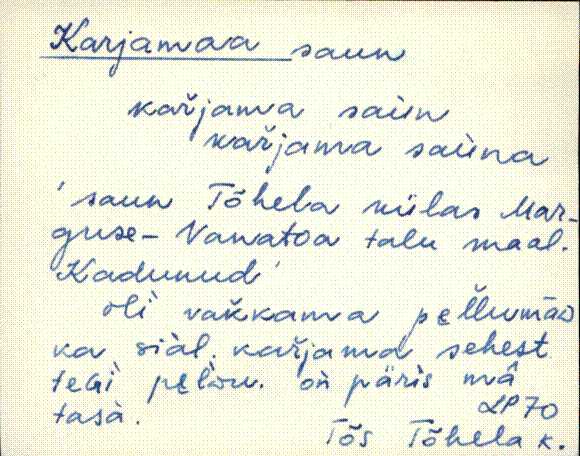 Karjamaa saun
kaŕjama saùn
kaŕjama saùna
'saun Tõhela külas Mar-
guse-Vanatoa talu maal.
Kadunud'
oli vakkama
ka siàl. kaŕjama sehest
teGi on päris mâ
tasà. LP70
Tõs Tõhela k.